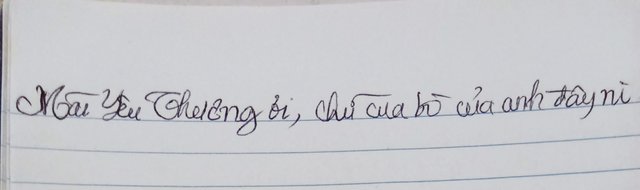 Mãi Yêu Thương ơi, chứ cua bò của anh đây nì